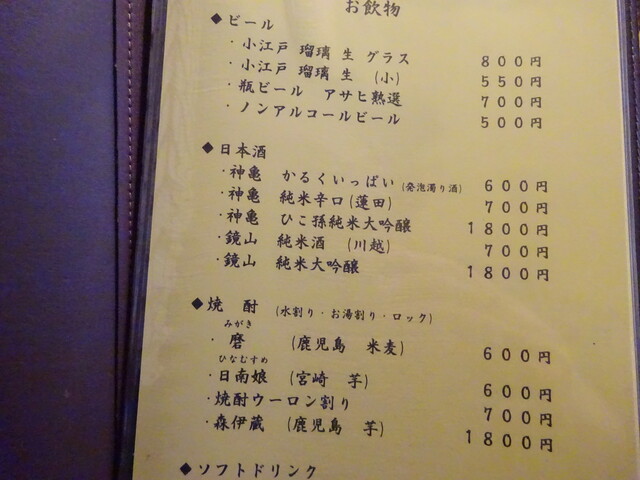 お飲物
◆ビール
・小江戸 瑠璃 生 グラス 800円
・小江戸 瑠璃 生 (小) 550円
・瓶ビール アサヒ熟選 700円
・ノンアルコールビール 500円
◆日本酒
・神亀 かるくいっぱい (発泡濁り酒) 600円
・神亀 純米辛口(蓮田) 700円
・神亀 ひこ孫純米大吟醸 1800円
・鏡山 純米酒 (川越) 700円
・鏡山 純米大吟醸 1800円
◆焼酎 (水割り・お湯割り・ロック)
みがき
・磨 (鹿児島 米麦) 600円
ひなむすめ
・日南娘 (宮崎 芋) 600円
・焼酎ウーロン割り 700円
・森伊蔵 (鹿児島 芋) 1800円
◆ソフトドリンク